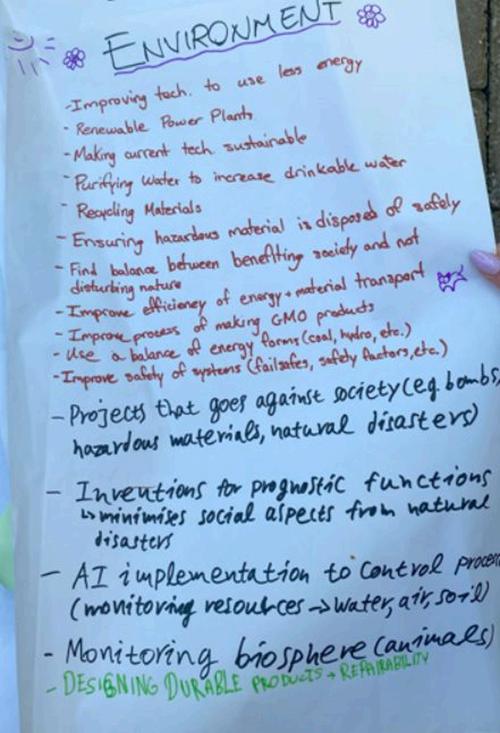 ENVIRONMENT
-Improving tech. to use less energy
- Renewable Power Plants
-Making current tech. sustainable
- Purifying water to increase drinkable water
- Recycling Materials
- Ensuring hazardous material is disposed of safely
- Find balance between benefiting society and not
disturbing nature
- Improve efficiency of energy + material transport
- Improve process of making GMO products
- Use a balance of energy forms (coal, hydro, etc.)
-Improve safety of systems (failsafes, safety factors, etc.)
- Projects that goes against society (eg. bombs,
hazardous materials, natural disasters)
- Inventions for prognostic functions
↳ minimises social aspects from natural
disasters
- AI implementation to control
(monitoring resources → water, air, soil)
- Monitoring biosphere (animals)
- DESIGNING DURABLE PRODUCTS + REPAIRABILITY